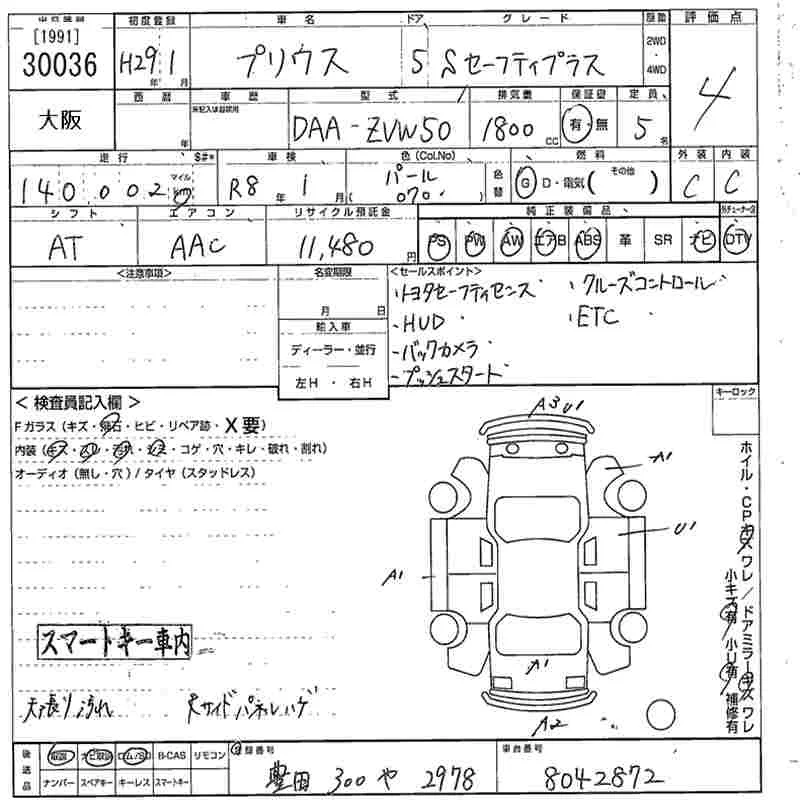 [1991]
30036
初度登録 車名 ドア グレード 駆動 評価点
H29 1 プリウス 5 Sセーフティプラス 2WD・4WD 4
年 月
大阪
西暦 車歴 型式 排気量 保証書 定員
年 DAA-ZVW50 1800 CC 有・無 5 名
走行 S#* 車検 色(Col.No) 燃料 外装 内装
140,002 マイル km R8 年 1 月 パール (070) 色替 G D・電気( その他 ) C C
シフト エアコン リサイクル預託金 純正装備品
AT AAC 11,480 円 PS PW AW エアB ABS 革 SR ナビ DTV
<注意事項> 名変期限 <セールスポイント>
月 日
・トヨタセーフティセンス ・クルーズコントロール
・HUD ・ETC
・バックカメラ
・プッシュスタート
輸入車
ディーラー・並行
左H・右H
<検査員記入欄> キーロック
Fガラス(キズ・飛石・ヒビ・リペア跡・X要)
内装(キズ・スレ・汚れ・シミ・コゲ・穴・キレ・破れ・割れ)
オーディオ(無し・穴)/タイヤ(スタッドレス)
A3 U1
A1
U1
A1
A1
A2
ホイル・CPキズ ワレ/ドアミラーキズ ワレ
小キズ有 小U有 補修有
スマートキー車内
天張り汚れ 大サイドパネルハゲ
後送品 取説 ナビ取説 ロム/SD B-CAS リモコン 登録番号 車台番号
ナンバー スペアキー キーレス スマートキー 豊田 300 や 2978 8042872